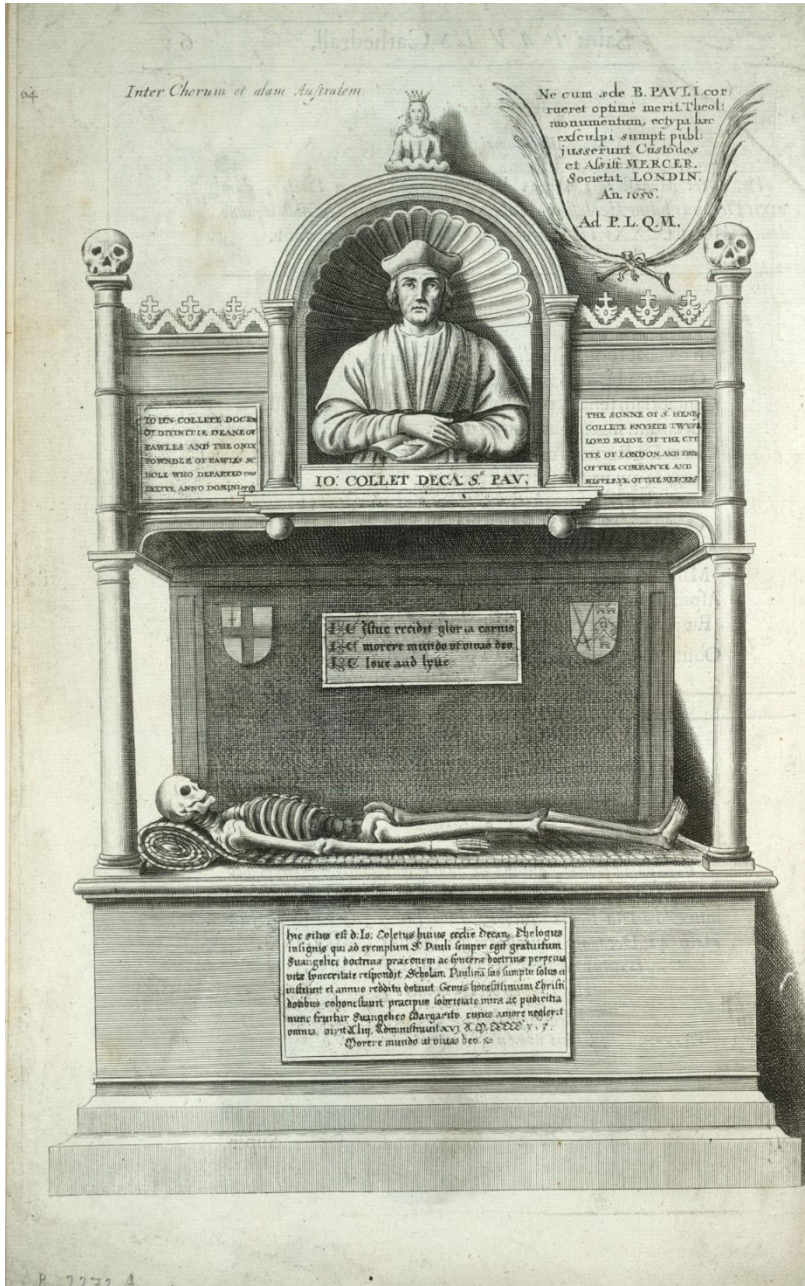 64
Inter Chorum et alam Australem
Ne cum æde B. PAVLI cor:
rueret optimè merit. Theol:
monumentum, ectypa hæc
exsculpi sumpt: publ:
jusserunt Custodes
et Assist: MERCER.
Societat. LONDIN.
An. 1656.
Ad P. L. Q. M.
IOHN COLLETE DOCT
OF DIVINITIE DEANE OF
PAWLES AND THE ONLY
FOWNDER OF PAWLES SC
HOLE WHO DEPARTED
ANNO DOMINI
THE SONNE OF Sr. HENRY
COLLETE KNYHTE TWYSE
LORD MAIOR OF THE CYT
TE OF LONDON AND
OF THE COMPANYE AND
MISTERYE OF THE MERCERS
IO: COLLET DECA: Sti. PAV:
Istuc recidit gloria carnis
morere mundo ut vivas deo
loue and lyue
hic situs est d: Io: Coletus huius ecclie Decan, Thelogus
insignis qui ad exemplum S. Pauli semper egit gratuitum
Euangelice doctrinæ præconem ac synceræ doctrinæ perpetua
vitæ synceritate respondit Scholam Paulinã suo sumptu solus
instituit et annuo redditu dotauit Genus honestissimum Christi
dotibus cohonestauit præcipue sobrietate mira ac pudicitia
nunc fruitur Euangelico Margarito, cuius amore neglexit
omnia, vixit administrauit xvj
Morere mundo ut viuas deo.